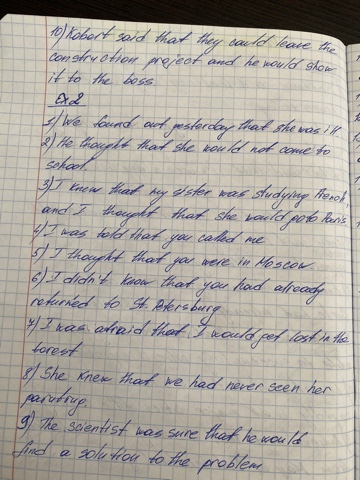 10) Robert said that they could leave the
construction project and he would show
it to the boss
Ex2
1) We found out yesterday that she was ill.
2) He thought that she would not come to
school.
3) I knew that my sister was studying French,
and I thought that she would go to Paris.
4) I was told that you called me
5) I thought that you were in Moscow.
6) I didn't know that you had already
returned to St. Petersburg
7) I was afraid that I would get lost in the
forest
8) She knew that we had never seen her
painting.
9) The scientist was sure that he would
find a solution to the problem